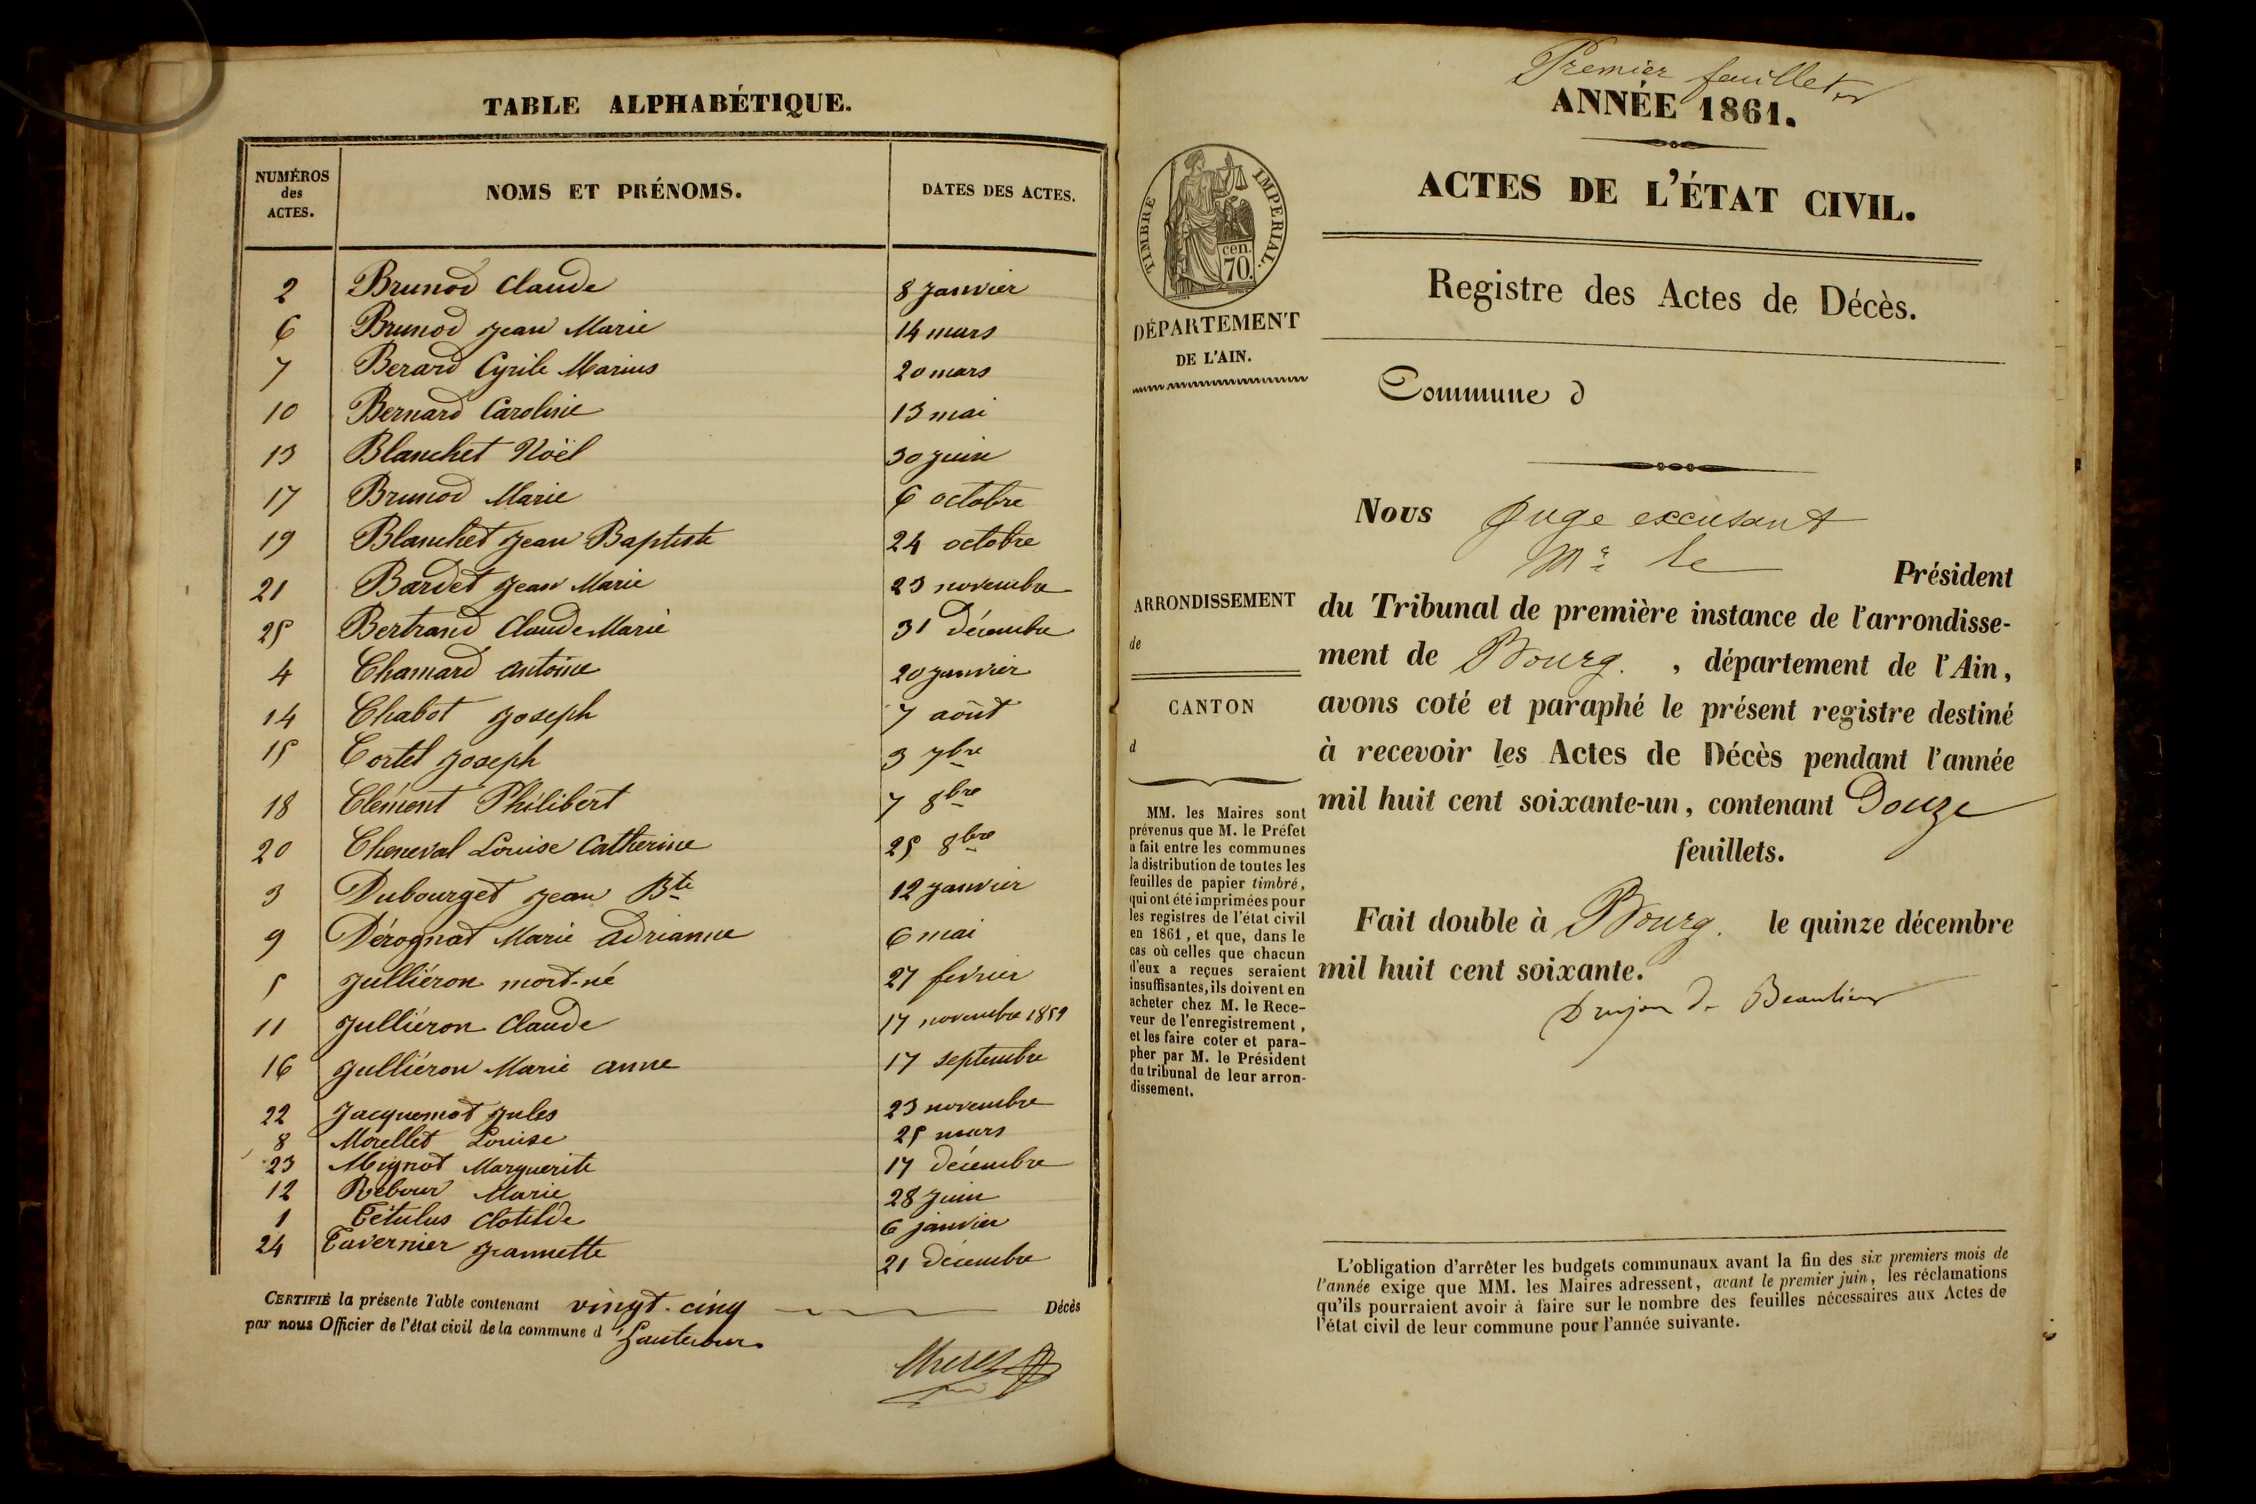 TABLE ALPHABÉTIQUE.
NUMÉROS des ACTES. NOMS ET PRÉNOMS. DATES DES ACTES.
2 Brunod Claude 8 Janvier
6 Brunod Jean Marie 14 mars
7 Berard Cyrile Marius 20 mars
10 Bernard Caroline 13 mai
13 Blanchet Noël 30 Juin
17 Brunod Marie 6 octobre
19 Blanchet Jean Baptiste 24 octobre
21 Bardet Jean Marie 23 novembre
25 Bertrand Claude Marie 31 Décembre
4 Chamard Antoine 20 Janvier
14 Chabot Joseph 7 août
15 Cortel Joseph 3 7bre
18 Clément Philibert 7 8bre
20 Cheneval Louise Catherine 25 8bre
3 Dubourget Jean Bte 12 Janvier
9 Dérognat Marie Adrianne 6 mai
5 Julliéron mort-né 27 fevrier
11 Julliéron Claude 17 novembre 1859
16 Julliéron Marie Anne 17 septembre
22 Jacquemot Jules 23 novembre
8 Morellet Louise 25 mars
23 Mignot Marguerite 17 décembre
12 Rebour Marie 28 Juin
1 Tétulus Clotilde 6 janvier
24 Tavernier Jeannette 21 décembre
CERTIFIÉ la présente Table contenant vingt-cinq Décès
par nous Officier de l'état civil de la commune d
Premier feuillet
ANNÉE 1861.
ACTES DE L'ÉTAT CIVIL.
Registre des Actes de Décès.
TIMBRE IMPÉRIAL.
cen.
70.
DÉPARTEMENT
DE L'AIN.
Commune d
Nous Juge excusant
Mr le Président
du Tribunal de première instance de l'arrondisse-
ment de Bourg. , département de l'Ain,
avons coté et paraphé le présent registre destiné
à recevoir les Actes de Décès pendant l'année
mil huit cent soixante-un, contenant Douze
feuillets.
Fait double à Bourg. le quinze décembre
mil huit cent soixante.
Drujon De Beaulieu
ARRONDISSEMENT
de
CANTON
d
MM. les Maires sont
prévenus que M. le Préfet
a fait entre les communes
la distribution de toutes les
feuilles de papier timbré,
qui ont été imprimées pour
les registres de l'état civil
en 1861, et que, dans le
cas où celles que chacun
d'eux a reçues seraient
insuffisantes, ils doivent en
acheter chez M. le Rece-
veur de l'enregistrement,
et les faire coter et para-
pher par M. le Président
du tribunal de leur arron-
dissement.
L'obligation d'arrêter les budgets communaux avant la fin des six premiers mois de
l'année exige que MM. les Maires adressent, avant le premier juin, les réclamations
qu'ils pourraient avoir à faire sur le nombre des feuilles nécessaires aux Actes de
l'état civil de leur commune pour l'année suivante.